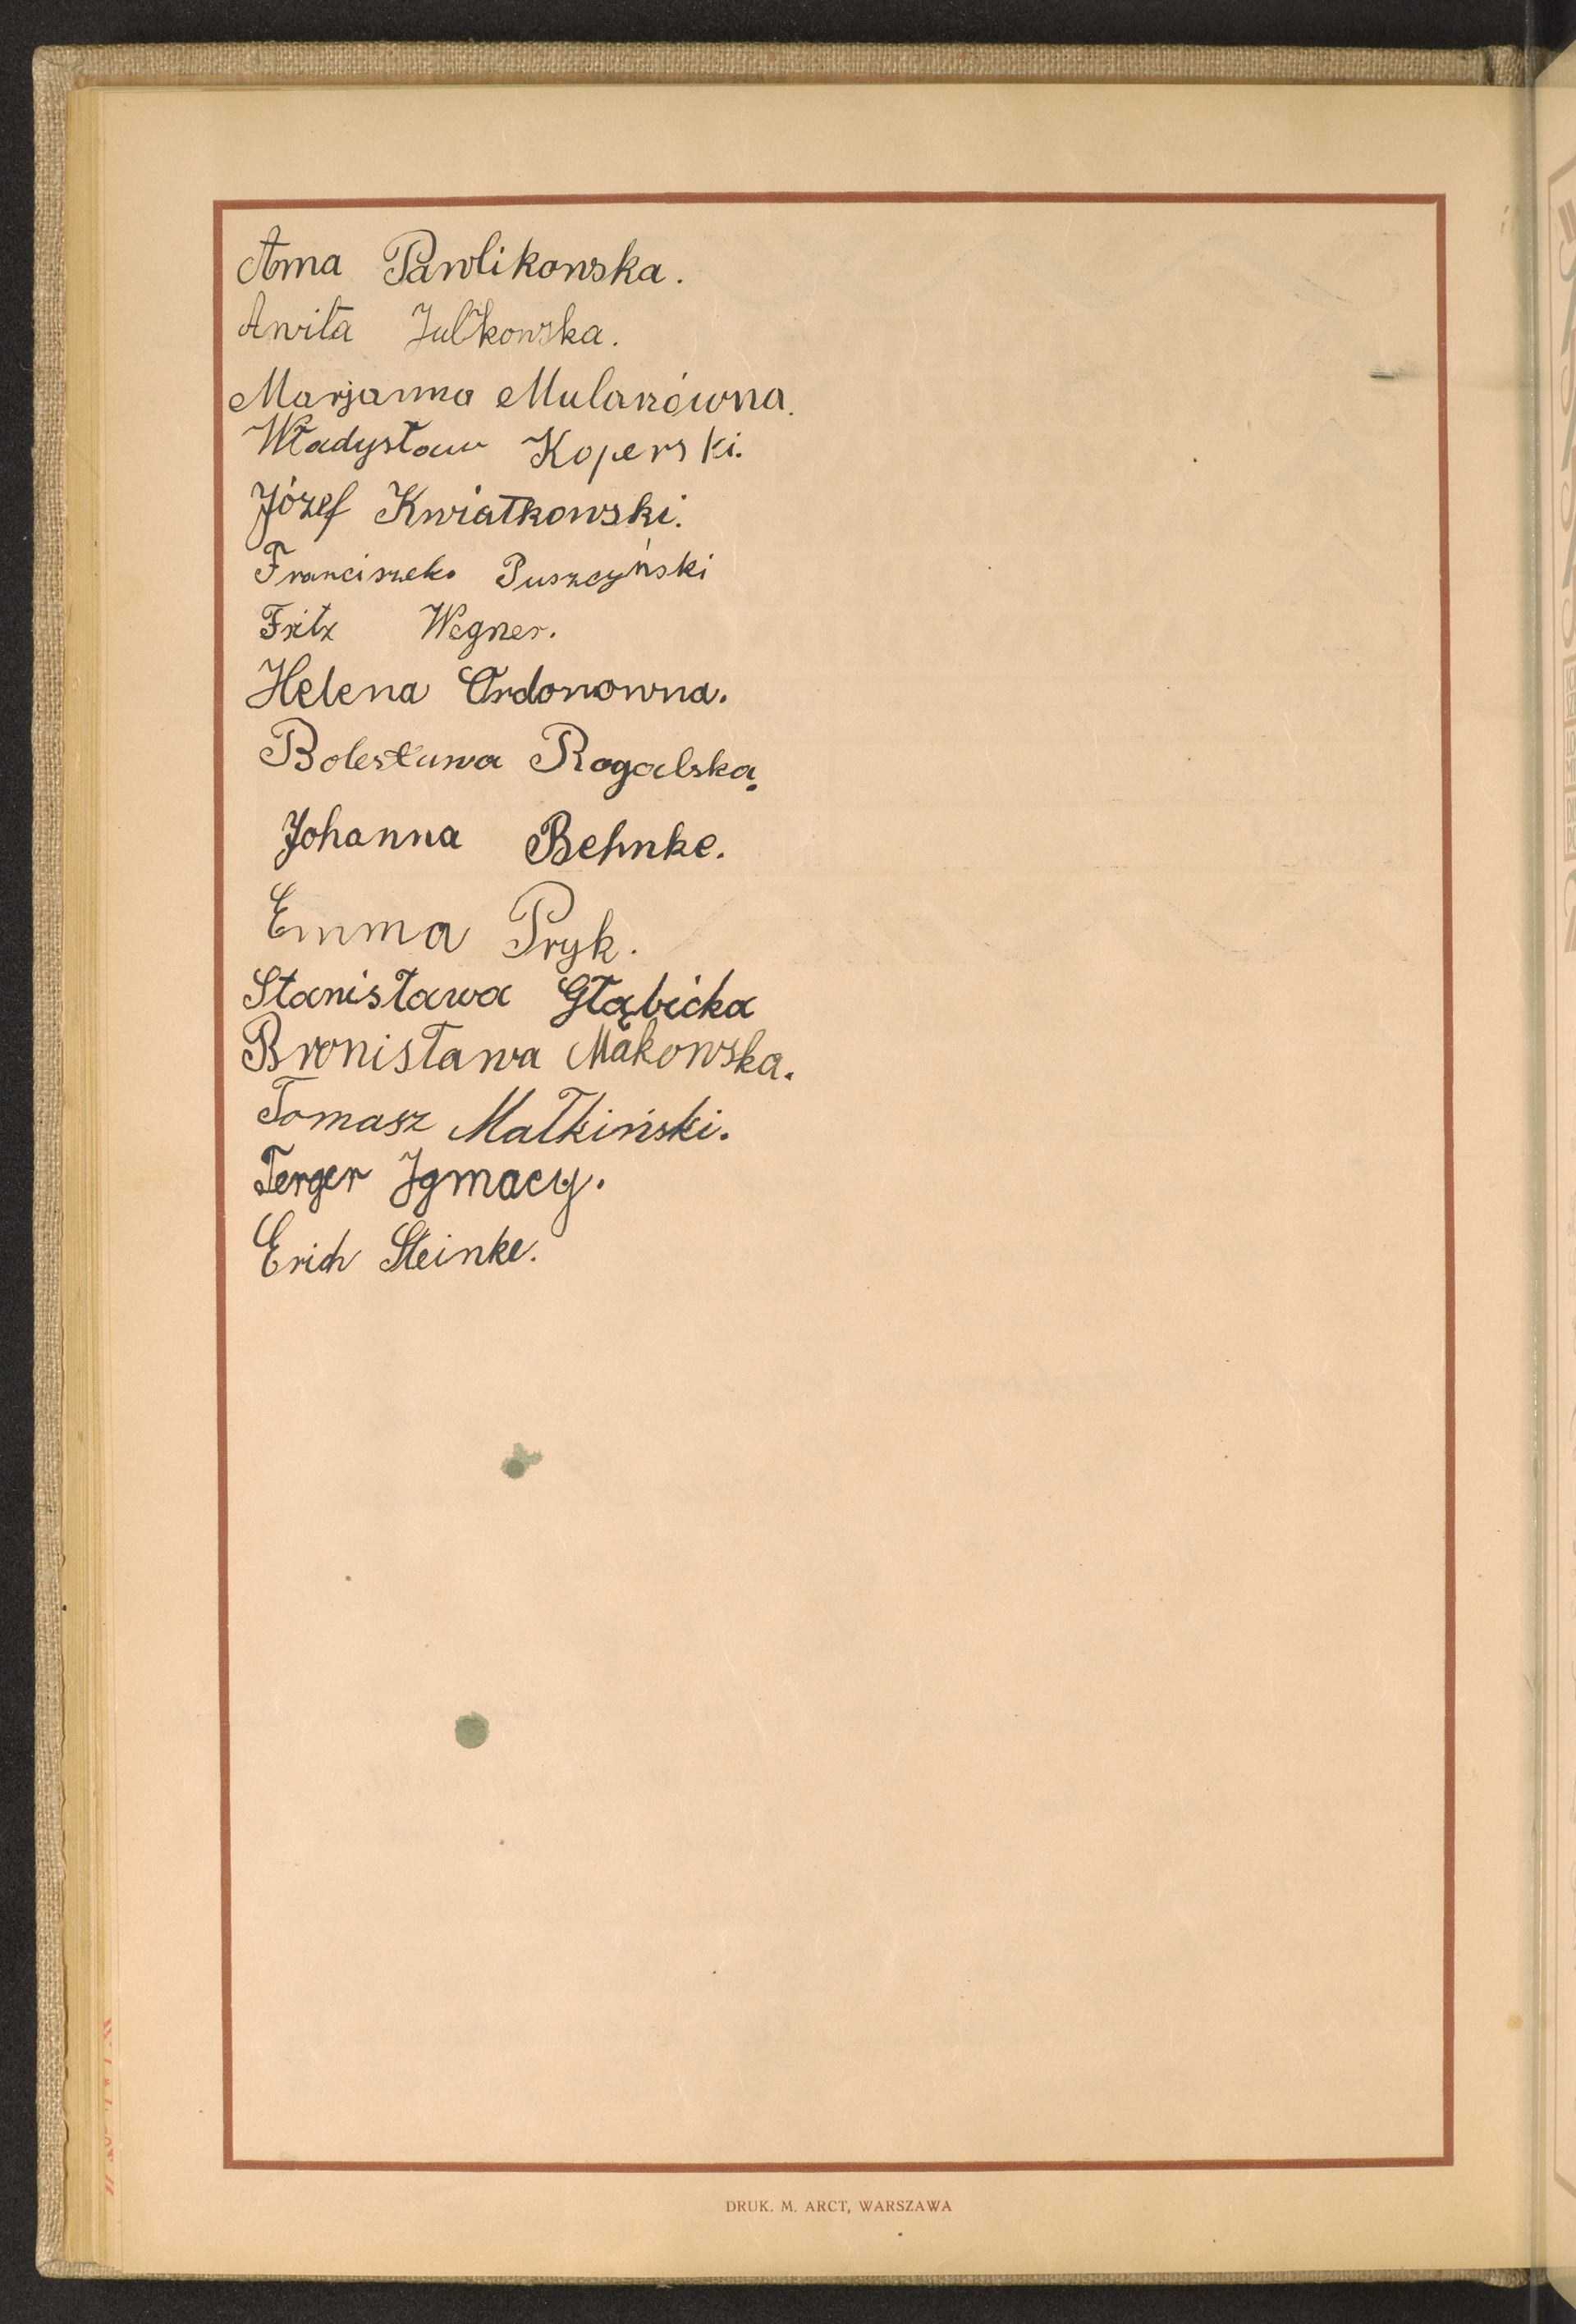 Anna Pawlikowska.
Anita Julkowska.
Marjanna Mulanówna.
Władysław Koperski.
Józef Kwiatkowski.
Franciszek Puszczyński
Fritz Wegner.
Helena Ordonowna.
Bolesława Rogalska.
Johanna Behnke.
Emma Pryk.
Stanisława Głąbicka
Bronisława Makowska.
Tomasz Małkiński.
Terger Ignacy.
Erich Steinke.
DRUK. M. ARCT, WARSZAWA